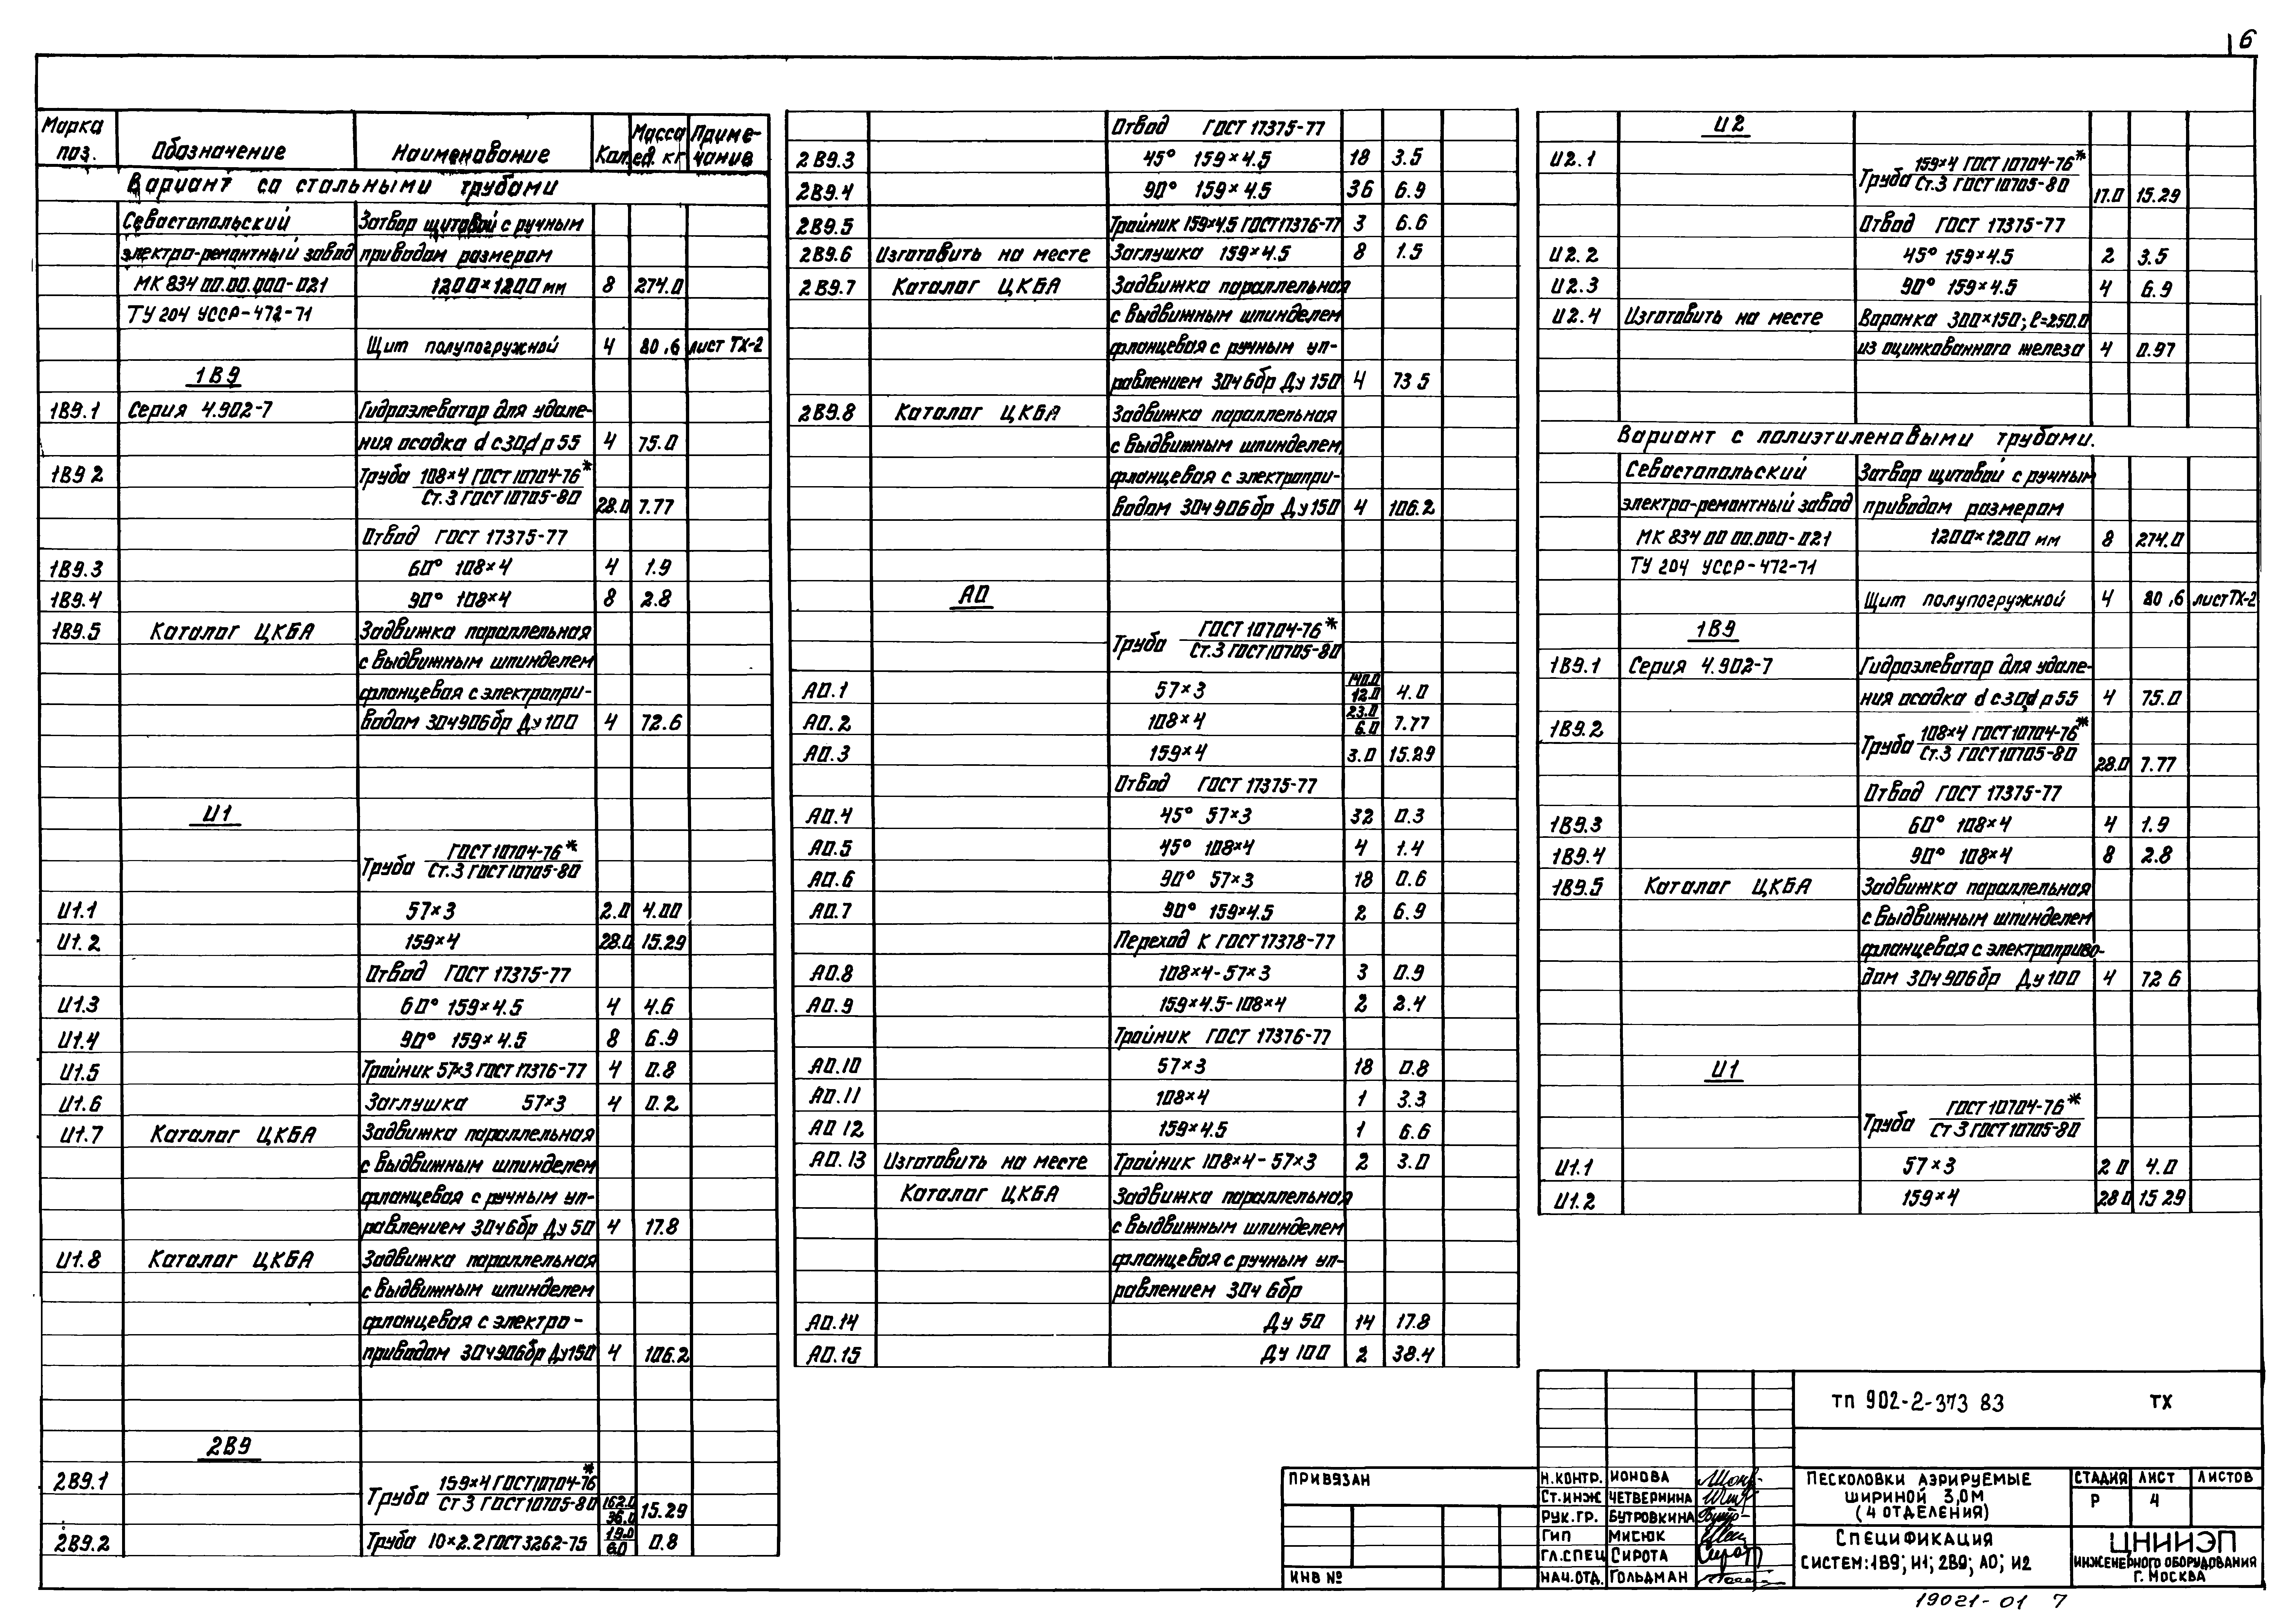 6
Марка поз. Обозначение Наименование Кол. Масса ед. кг Примечание
Вариант со стальными трубами
Севастопольский Затвор щитовой с ручным
электро-ремонтный завод приводом размером
МК 834 00.00.000-021 1200×1200 мм 8 274.0
ТУ 204 УССР-472-71
Щит полупогружной 4 80,6 лист ТХ-2
1В9
1В9.1 Серия 4.902-7 Гидроэлеватор для удале-
ния осадка d с30,d р 55 4 75.0
1В9 2 Труба 108×4 ГОСТ 10704-76*
Ст.3 ГОСТ 10705-80 28.0 7.77
Отвод ГОСТ 17375-77
1В9.3 60° 108×4 4 1.9
1В9.4 90° 108×4 8 2.8
1В9.5 Каталог ЦКБА Задвижка параллельная
с выдвижным шпинделем
фланцевая с электропри-
водом 30ч906бр Ду 100 4 72.6
И1
Труба ГОСТ 10704-76*
Ст.3 ГОСТ 10705-80
И1.1 57×3 2.0 4.00
И1.2 159×4 28.0 15.29
Отвод ГОСТ 17375-77
И1.3 60° 159×4.5 4 4.6
И1.4 90° 159×4.5 8 6.9
И1.5 Тройник 57×3 ГОСТ 17376-77 4 0.8
И1.6 Заглушка 57×3 4 0.2
И1.7 Каталог ЦКБА Задвижка параллельная
с выдвижным шпинделем
фланцевая с ручным уп-
равлением 30ч6бр Ду 50 4 17.8
И1.8 Каталог ЦКБА Задвижка параллельная
с выдвижным шпинделем
фланцевая с электро-
приводом 30ч906бр Ду150 4 106.2
2В9
2В9.1 Труба 159×4 ГОСТ 10704-76*
Ст 3 ГОСТ 10705-80 162.0 36.0 15.29
2В9.2 Труба 10×2.2 ГОСТ 3262-75 19.0 6.0 0.8
Отвод ГОСТ 17375-77
2В9.3 45° 159×4.5 18 3.5
2В9.4 90° 159×4.5 36 6.9
2В9.5 Тройник 159×4.5 ГОСТ 17376-77 3 6.6
2В9.6 Изготовить на месте Заглушка 159×4.5 8 1.5
2В9.7 Каталог ЦКБА Задвижка параллельная
с выдвижным шпинделем
фланцевая с ручным уп-
равлением 30ч6бр Ду 150 4 73 5
2В9.8 Каталог ЦКБА Задвижка параллельная
с выдвижным шпинделем
фланцевая с электропри-
водом 30ч906бр Ду150 4 106.2
А0
Труба ГОСТ 10704-76*
Ст.3 ГОСТ 10705-80
А0.1 57×3 140.0 12.0 4.0
А0.2 108×4 23.0 6.0 7.77
А0.3 159×4 3.0 15.29
Отвод ГОСТ 17375-77
А0.4 45° 57×3 32 0.3
А0.5 45° 108×4 4 1.4
А0.6 90° 57×3 18 0.6
А0.7 90° 159×4.5 2 6.9
Переход К ГОСТ 17378-77
А0.8 108×4-57×3 3 0.9
А0.9 159×4.5-108×4 2 2.4
Тройник ГОСТ 17376-77
А0.10 57×3 18 0.8
А0.11 108×4 1 3.3
А0 12 159×4.5 1 6.6
А0.13 Изготовить на месте Тройник 108×4-57×3 2 3.0
Каталог ЦКБА Задвижка параллельная
с выдвижным шпинделем
фланцевая с ручным уп-
равлением 30ч 6бр
А0.14 Ду 50 14 17.8
А0.15 Ду 100 2 38.4
И2
И2.1 Труба 159×4 ГОСТ 10704-76*
Ст.3 ГОСТ 10705-80 17.0 15.29
Отвод ГОСТ 17375-77
И2.2 45° 159×4.5 2 3.5
И2.3 90° 159×4.5 4 6.9
И2.4 Изготовить на месте Воронка 300×150; ℓ=250.0
из оцинкованного железа 4 0.97
Вариант с полиэтиленовыми трубами.
Севастопольский Затвор щитовой с ручным
электро-ремонтный завод приводом размером
МК 834 00 00.000-021 1200×1200 мм 8 274.0
ТУ 204 УССР-472-71
Щит полупогружной 4 80,6 лист ТХ-2
1В9
1В9.1 Серия 4.902-7 Гидроэлеватор для удале-
ния осадка d с30,d р 55 4 75.0
1В9.2 Труба 108×4 ГОСТ 10704-76*
Ст.3 ГОСТ 10705-80 28.0 7.77
Отвод ГОСТ 17375-77
1В9.3 60° 108×4 4 1.9
1В9.4 90° 108×4 8 2.8
1В9.5 Каталог ЦКБА Задвижка параллельная
с выдвижным шпинделем
фланцевая с электроприво-
дом 30ч906бр Ду 100 4 72 6
И1
Труба ГОСТ 10704-76*
Ст 3 ГОСТ 10705-80
И1.1 57×3 2 0 4.0
И1.2 159×4 28 0 15 29
ТП 902-2-373 83 ТХ
ПРИВЯЗАН
ИНВ №
Н.КОНТР. ИОНОВА
СТ.ИНЖ ЧЕТВЕРНИНА
РУК.ГР. БУТРОВКИНА
ГИП МИСЮК
ГЛ.СПЕЦ СИРОТА
НАЧ.ОТД. ГОЛЬДМАН
ПЕСКОЛОВКИ АЭРИРУЕМЫЕ
ШИРИНОЙ 3,0М
(4 ОТДЕЛЕНИЯ)
СТАДИЯ ЛИСТ ЛИСТОВ
Р 4
СПЕЦИФИКАЦИЯ
СИСТЕМ: 1В9; И1; 2В9; А0; И2
ЦНИИЭП
ИНЖЕНЕРНОГО ОБОРУДОВАНИЯ
Г. МОСКВА
19021-01 7